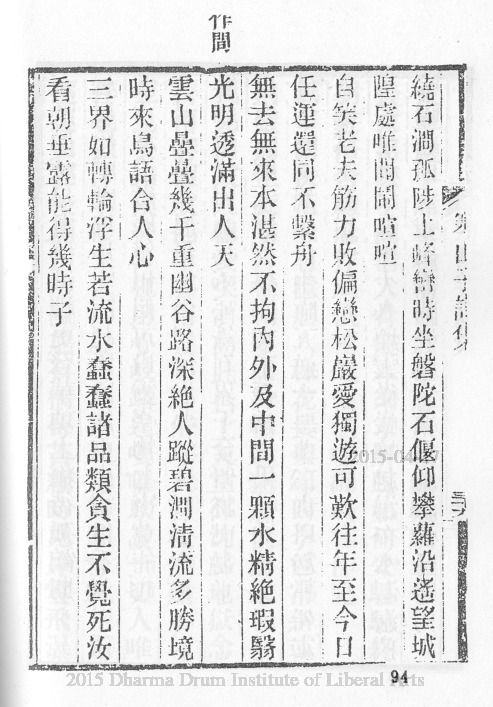 寒山子詩集
繞石澗孤陟上峰巒時坐磐陀石偃仰攀蘿沿遙望城
隍處唯聞鬧喧喧
自笑老夫筋力敗偏戀松巖愛獨遊可歎往年至今日
任運還同不繫舟
無去無來本湛然不拘內外及中間一顆水精絕瑕翳
光明透滿出人天
雲山疊疊幾千重幽谷路深絕人蹤碧澗清流多勝境
時來鳥語合人心
三界如轉輪浮生若流水蠢蠢諸品類貪生不覺死汝
看朝垂露能得幾時子
作間
94
2015 Dharma Drum Institute of Liberal Arts